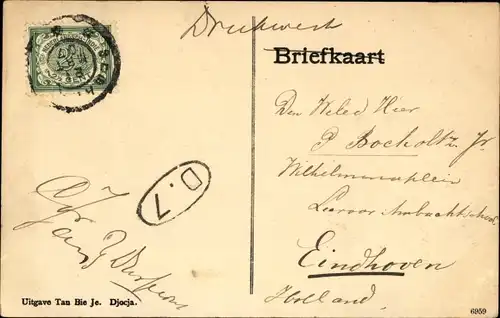 Drukwerk
Briefkaart
Den Weled Heer
P Bocholtz Jr.
Wilhelminaplein
Leeraar Ambachtschool
Eindhoven
Holland.
D. 7
Uitgave Tan Bie Je. Djocja.
6959